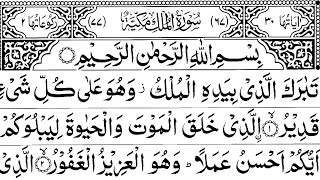 اٰیَاتُهَا ٣٠ (٦٧) سُوْرَةُ الْمُلْكِ مَكِّيَّةٌ (٧٧) رُكُوْعَاتُهَا ٢
بِسْمِ اللهِ الرَّحْمٰنِ الرَّحِيْمِ
تَبٰرَكَ الَّذِيْ بِيَدِهِ الْمُلْكُ ز وَهُوَ عَلٰى كُلِّ شَيْءٍ
قَدِيْرُ ۙ﴿١﴾ الَّذِيْ خَلَقَ الْمَوْتَ وَالْحَيٰوةَ لِيَبْلُوَكُمْ
اَيُّكُمْ اَحْسَنُ عَمَلًا ؕ وَهُوَ الْعَزِيْزُ الْغَفُوْرُ ۙ﴿٢﴾ الَّذِيْ